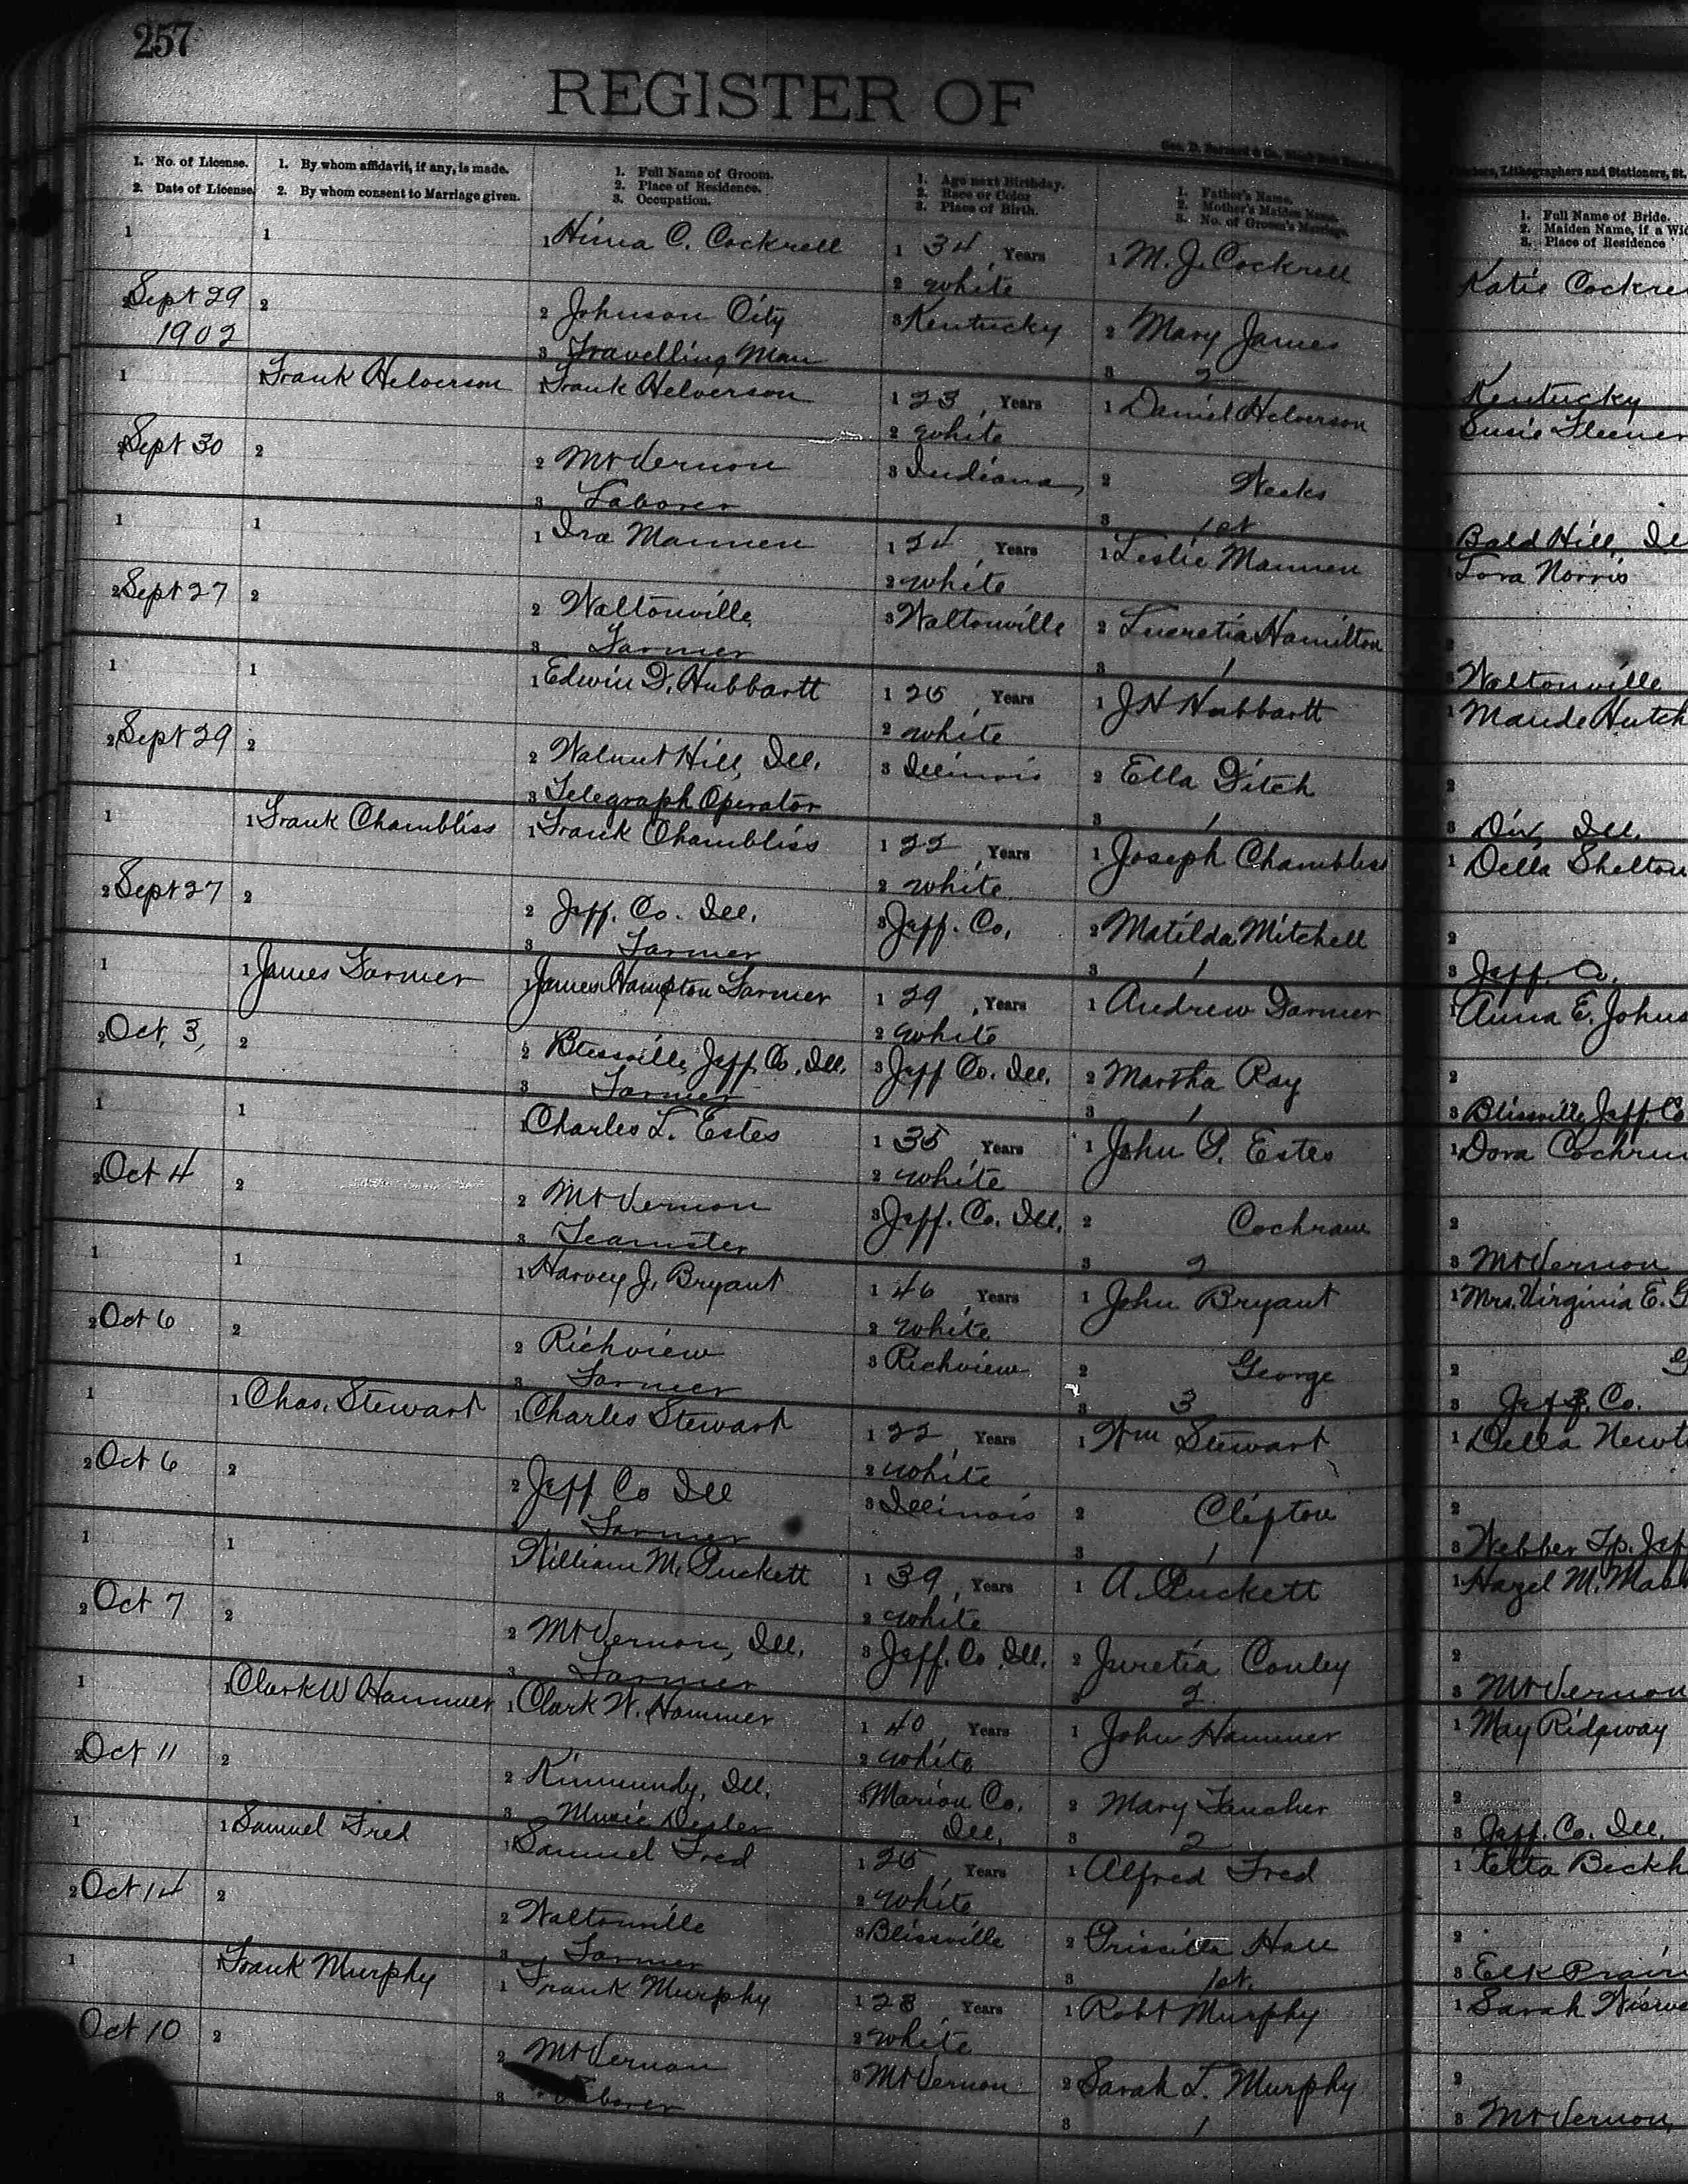 257
REGISTER OF
1. No. of License.
2. Date of License.
1. By whom affidavit, if any, is made.
2. By whom consent to Marriage given.
1. Full Name of Groom.
2. Place of Residence.
3. Occupation.
1. Age next Birthday.
2. Race or Color
3. Place of Birth.
1. Father's Name.
2. Mother's Maiden Name.
3. No. of Groom's Marriage.
Lithographers and Stationers, St.
1. Full Name of Bride.
2. Maiden Name, if a Wid
3. Place of Residence
1
2 Sept 29
1902
1
2
1 Hiina C. Cockrell
2 Johnson City
3 Travelling Man
1 34 Years
2 white
3 Kentucky
1 M. J. Cockrell
2 Mary James
3 2
Katie Cockre
Kentucky
1
2 Sept 30
1 Frank Helverson
2
1 Frank Helverson
2 Mt Vernon
3 Laborer
1 23 Years
2 white
3 Indiana
1 Daniel Helverson
2 Weeks
3 1st
Susie Fleener
Bald Hill, Il
1
2 Sept 27
1
2
1 Ira Mannen
2 Waltonville
3 Farmer
1 24 Years
2 white
3 Waltonville
1 Leslie Mannen
2 Lucretia Hamilton
3 1
Norris
2
3 Waltonville
1
2 Sept 29
1
2
1 Edwin D. Hubbartt
2 Walnut Hill, Ill.
3 Telegraph Operator
1 25 Years
2 white
3 Illinois
1 J H Hubbartt
2 Ella Ditch
3 1
1 Maude Hutch
2
3 Dix, Ill.
1
2 Sept 27
1 Frank Chambliss
2
1 Frank Chambliss
2 Jeff. Co. Ill.
3 Farmer
1 22 Years
2 white
3 Jeff. Co.
1 Joseph Chambliss
2 Matilda Mitchell
3 1
1 Della Shelton
2
3 Jeff. Co.
1
2 Oct, 3,
1 James Farmer
2
1 James Hampton Farmer
2 Blissville, Jeff. Co. Ill.
3 Farmer
1 29 Years
2 white
3 Jeff Co. Ill.
1 Andrew Farmer
2 Martha Ray
3 1
1 Anna E. Johns
2
3 Blissville, Jeff. Co
1
2 Oct 4
1
2
1 Charles L. Estes
2 Mt Vernon
3 Teamster
1 35 Years
2 white
3 Jeff. Co. Ill.
1 John P. Estes
2 Cochran
3 2
1 Dora Cochru
2
3 Mt Vernon
1
2 Oct 6
1
2
1 Harvey J. Bryant
2 Richview
3 Farmer
1 46 Years
2 white
3 Richview
1 John Bryant
2 George
3 3
1 Mrs. Virginia E. G
2 G
3 Jeff. Co.
1
2 Oct 6
1 Chas. Stewart
2
1 Charles Stewart
2 Jeff Co Ill
3 Farmer
1 22 Years
2 white
3 Illinois
1 Wm Stewart
2 Clifton
3 1
1 Della Newt
2
3 Webber Tp. Jef
1
2 Oct 7
1
2
1 William M. Puckett
2 Mt Vernon, Ill.
3 Farmer
1 39 Years
2 white
3 Jeff. Co. Ill.
1 A. Puckett
2 Juretia Conley
3 2
1 Hazel M. Mab
2
3 Mt Vernon
1
2 Oct 11
1 Clark W Hammer
2
1 Clark W. Hammer
2 Kinmundy, Ill.
3 Music Dealer
1 40 Years
2 white
3 Marion Co.
Ill.
1 John Hammer
2 Mary Fancher
3 2
1 May Ridgway
2
3 Jeff. Co. Ill.
1
2 Oct 14
1 Samuel Fred
2
1 Samuel Fred
2 Waltonville
3 Farmer
1 25 Years
2 white
3 Blissville
1 Alfred Fred
2 Prissilla Hall
3 1st.
1 Beckh
2
3 Elk Prairi
1
Oct 10
1 Frank Murphy
2
1 Frank Murphy
2 Mt Vernon
3 Laborer
1 28 Years
2 white
3 Mt Vernon
1 Robt Murphy
2 Sarah T. Murphy
3 1
1 Sarah
2
3 Mt Vernon,